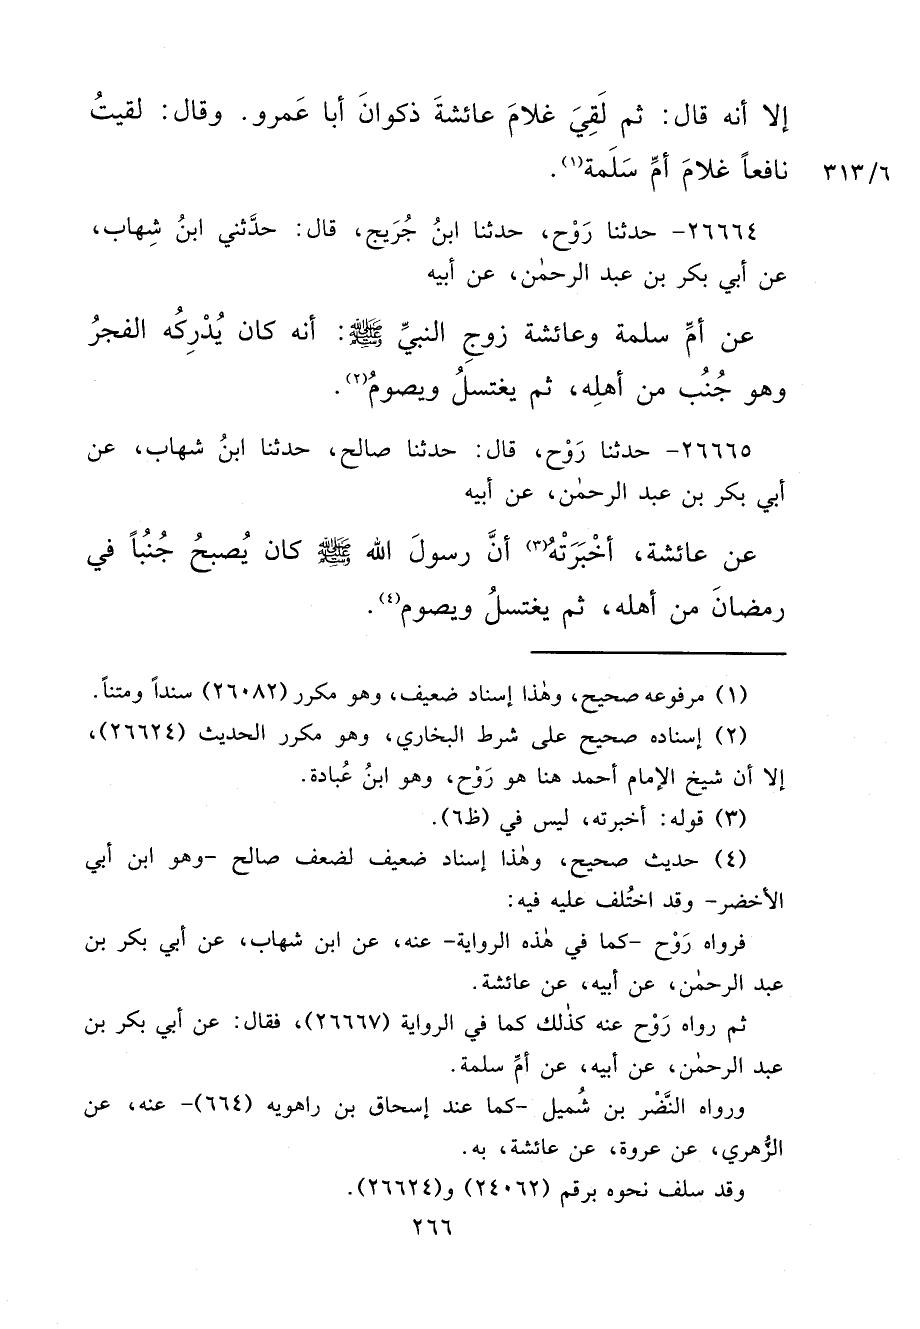 إلا أنه قال: ثم لَقِيَ غلامَ عائشةَ ذكوانَ أبا عَمرو. وقال: لقيتُ
نافعاً غلامَ أمِّ سَلَمة(١).
٣١٣/٦
٢٦٦٦٤- حدثنا رَوْح، حدثنا ابنُ جُرَيج، قال: حدَّثني ابنُ شِهاب،
عن أبي بكر بن عبد الرحمٰن، عن أبيه
عن أمِّ سلمة وعائشة زوجِ النبيِّ ﷺ: أنه كان يُدْرِكُه الفجرُ
وهو جُنُب من أهلِه، ثم يغتسلُ ويصومُ(٢).
٢٦٦٦٥- حدثنا رَوْح، قال: حدثنا صالح، حدثنا ابنُ شهاب، عن
أبي بكر بن عبد الرحمٰن، عن أبيه
عن عائشة، أخْبَرَتْهُ(٣) أنَّ رسولَ الله ﷺ كان يُصبحُ جُنُباً في
رمضانَ من أهله، ثم يغتسلُ ويصوم(٤).
(١) مرفوعه صحيح، وهٰذا إسناد ضعيف، وهو مكرر (٢٦٠٨٢) سنداً ومتناً.
(٢) إسناده صحيح على شرط البخاري، وهو مكرر الحديث (٢٦٦٢٤)،
إلا أن شيخ الإمام أحمد هنا هو رَوْح، وهو ابنُ عُبادة.
(٣) قوله: أخبرته، ليس في (ظ٦).
(٤) حديث صحيح، وهٰذا إسناد ضعيف لضعف صالح -وهو ابن أبي
الأخضر- وقد اختُلف عليه فيه:
فرواه رَوْح -كما في هٰذه الرواية- عنه، عن ابن شهاب، عن أبي بكر بن
عبد الرحمٰن، عن أبيه، عن عائشة.
ثم رواه رَوْح عنه كذٰلك كما في الرواية (٢٦٦٦٧)، فقال: عن أبي بكر بن
عبد الرحمٰن، عن أبيه، عن أمِّ سلمة.
ورواه النَّضْر بن شُميل -كما عند إسحاق بن راهويه (٦٦٤)- عنه، عن
الزُّهري، عن عروة، عن عائشة، به.
وقد سلف نحوه برقم (٢٤٠٦٢) و(٢٦٦٢٤).
٢٦٦